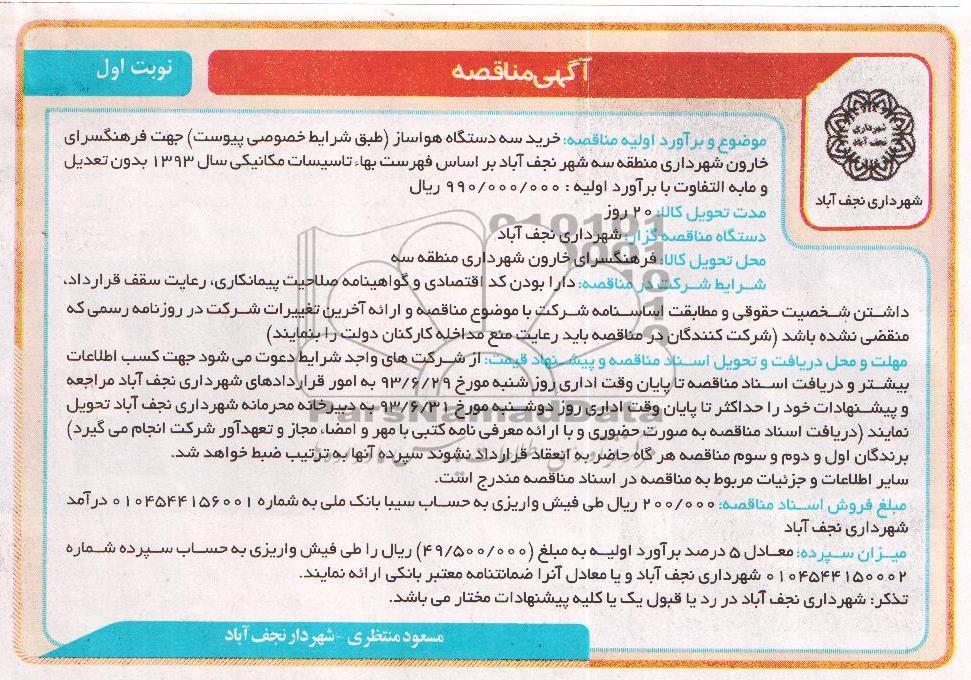 آگهی مناقصه
نوبت اول
شهرداری نجف آباد
شهرداری نجف آباد
موضوع و برآورد اولیه مناقصه: خرید سه دستگاه هواساز (طبق شرایط خصوصی پیوست) جهت فرهنگسرای
خارون شهرداری منطقه سه شهر نجف آباد بر اساس فهرست بهاء تاسیسات مکانیکی سال ۱۳۹۳ بدون تعدیل
و مابه التفاوت با برآورد اولیه : ۹۹۰/۰۰۰/۰۰۰ ریال
مدت تحویل کالا: ۲۰ روز
دستگاه مناقصه گزار: شهرداری نجف آباد
محل تحویل کالا: فرهنگسرای خارون شهرداری منطقه سه
شرایط شرکت در مناقصه: دارا بودن کد اقتصادی و گواهینامه صلاحیت پیمانکاری، رعایت سقف قرارداد،
داشتن شخصیت حقوقی و مطابقت اساسنامه شرکت با موضوع مناقصه و ارائه آخرین تغییرات شرکت در روزنامه رسمی که
منقضی نشده باشد (شرکت کنندگان در مناقصه باید رعایت منع مداخله کارکنان دولت را بنمایند)
مهلت و محل دریافت و تحویل اسناد مناقصه و پیشنهاد قیمت: از شرکت های واجد شرایط دعوت می شود جهت کسب اطلاعات
بیشتر و دریافت اسناد مناقصه تا پایان وقت اداری روز شنبه مورخ ۹۳/۶/۲۹ به امور قراردادهای شهرداری نجف آباد مراجعه
و پیشنهادات خود را حداکثر تا پایان وقت اداری روز دوشنبه مورخ ۹۳/۶/۳۱ به دبیرخانه محرمانه شهرداری نجف آباد تحویل
نمایند (دریافت اسناد مناقصه به صورت حضوری و با ارائه معرفی نامه کتبی با مهر و امضاء مجاز و تعهدآور شرکت انجام می گیرد)
برندگان اول و دوم و سوم مناقصه هر گاه حاضر به انعقاد قرارداد نشوند سپرده آنها به ترتیب ضبط خواهد شد.
سایر اطلاعات و جزئیات مربوط به مناقصه در اسناد مناقصه مندرج است.
مبلغ فروش اسناد مناقصه: ۲۰۰/۰۰۰ ریال طی فیش واریزی به حساب سیبا بانک ملی به شماره ۰۱۰۴۵۴۴۱۵۶۰۰۱ درآمد
شهرداری نجف آباد
میزان سپرده: معادل ۵ درصد برآورد اولیه به مبلغ (۴۹/۵۰۰/۰۰۰) ریال را طی فیش واریزی به حساب سپرده شماره
۰۱۰۴۵۴۴۱۵۰۰۰۲ شهرداری نجف آباد و یا معادل آنرا ضمانتنامه معتبر بانکی ارائه نمایند.
تذکر: شهرداری نجف آباد در رد یا قبول یک یا کلیه پیشنهادات مختار می باشد.
مسعود منتظری - شهردار نجف آباد
ParsNamadData